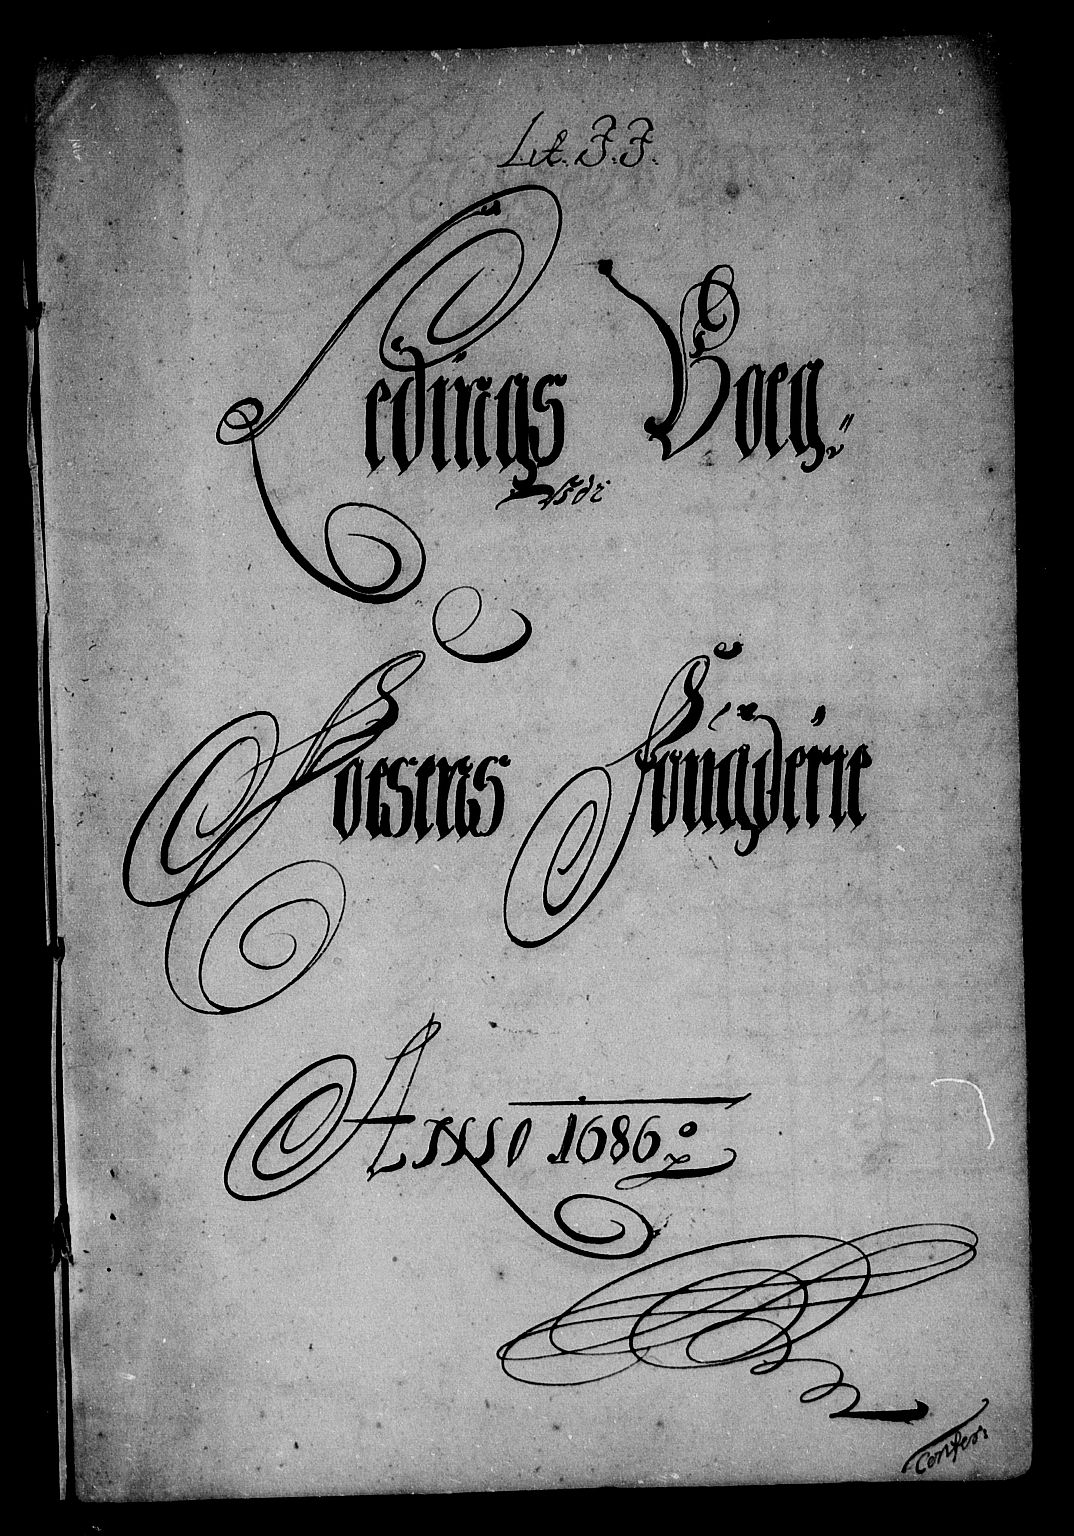 Lit. F.F.
Ledings Boeg
Foesens Fougderie
Anno 1686
Confer